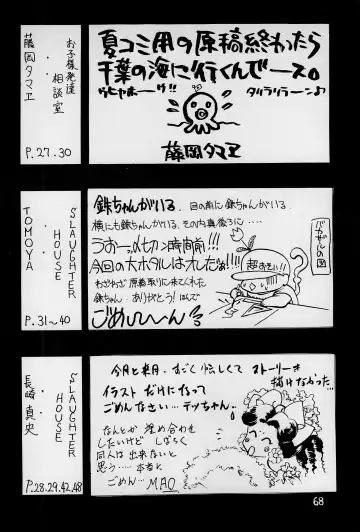 お子様発達
相談室
・
藤岡タマヱ
P.27.30
夏コミ用の原稿終わったら
千葉の海に行くんでース。
タリラリラーン♪
藤岡タマヱ
SLAUGHTER
HOUSE
・
TOMOYA
P.31~40
鉄ちゃんがいる。目の前に鉄ちゃんがいる。
横にも鉄ちゃんがいる、その内真後ろに……
時間前!!!
今回の大ホタルはオレだぁ!!!
わざわざ原稿取りに来てくれた
鉄ちゃん、ありがとう!ほんで
ごめーん
超おそい!!
SLAUGHTER
HOUSE
・
長崎真央
P.28.29.42.48
今月と来月、すごく忙しくてストーリーを
描けなかった…
イラストだけになって
ごめんなさい…テッちゃん。
なんとか埋め合わせを
したいけどしばらく
同人は出来ないと
思う……本当に
ごめん…MAO
68